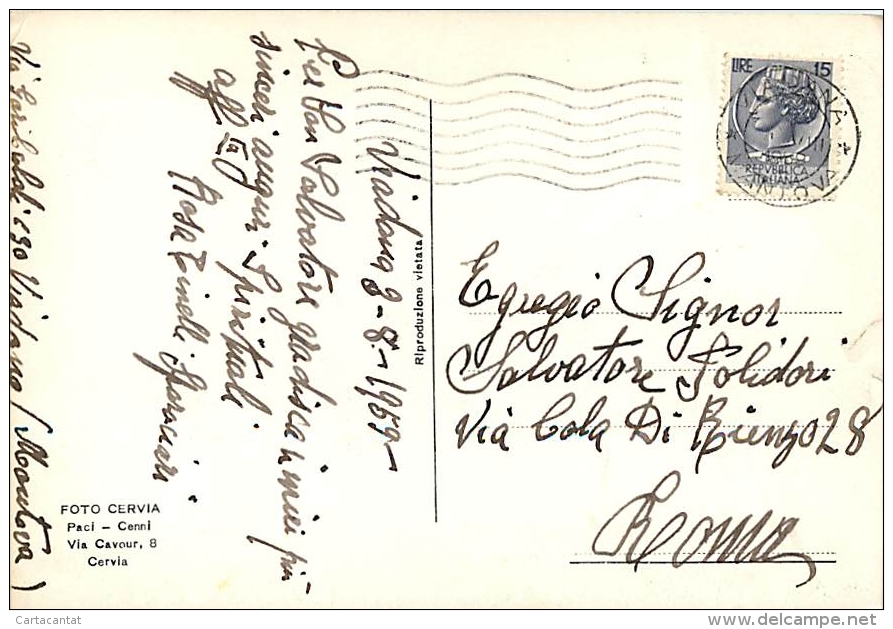 Viadana 3-8-1959-
Per San Salvatore gradisca i miei più
sinceri auguri Spirituali
aff
Rosa
Via Garibaldi 130 Viadana (Mantova)
FOTO CERVIA
Paci - Cenni
Via Cavour, 8
Cervia
Riproduzione vietata
LIRE 15
REPVBBLICA
ITALIANA
VIADANA
MANTOVA
Egregio Signor
Salvatore Polidori
Via Cola Di Rienzo 28
Roma
Cartacantat
www.delcampe.net